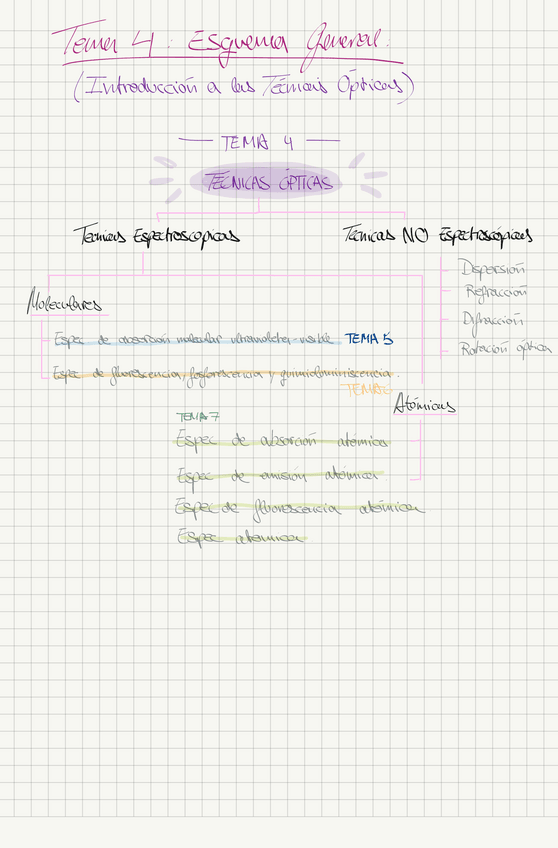 Tema 4: Esquema General.
(Introducción a las Técnicas Ópticas)
TEMA 4
TÉCNICAS ÓPTICAS
Tecnicas Espectroscopicas
Tecnicas NO Espectroscópicas
Dispersión
Refracción
Difracción
Rotación óptica
Moleculares
Espec de absorción molecular ultravioleta-visible TEMA 5
Espec de fluorescencia, fosforescencia y quimioluminiscencia.
TEMA 6
Atómicas
TEMA 7
Espec de absorción atómica
Espec de emisión atómica
Espec de fluorescencia atómica
Espec atómica